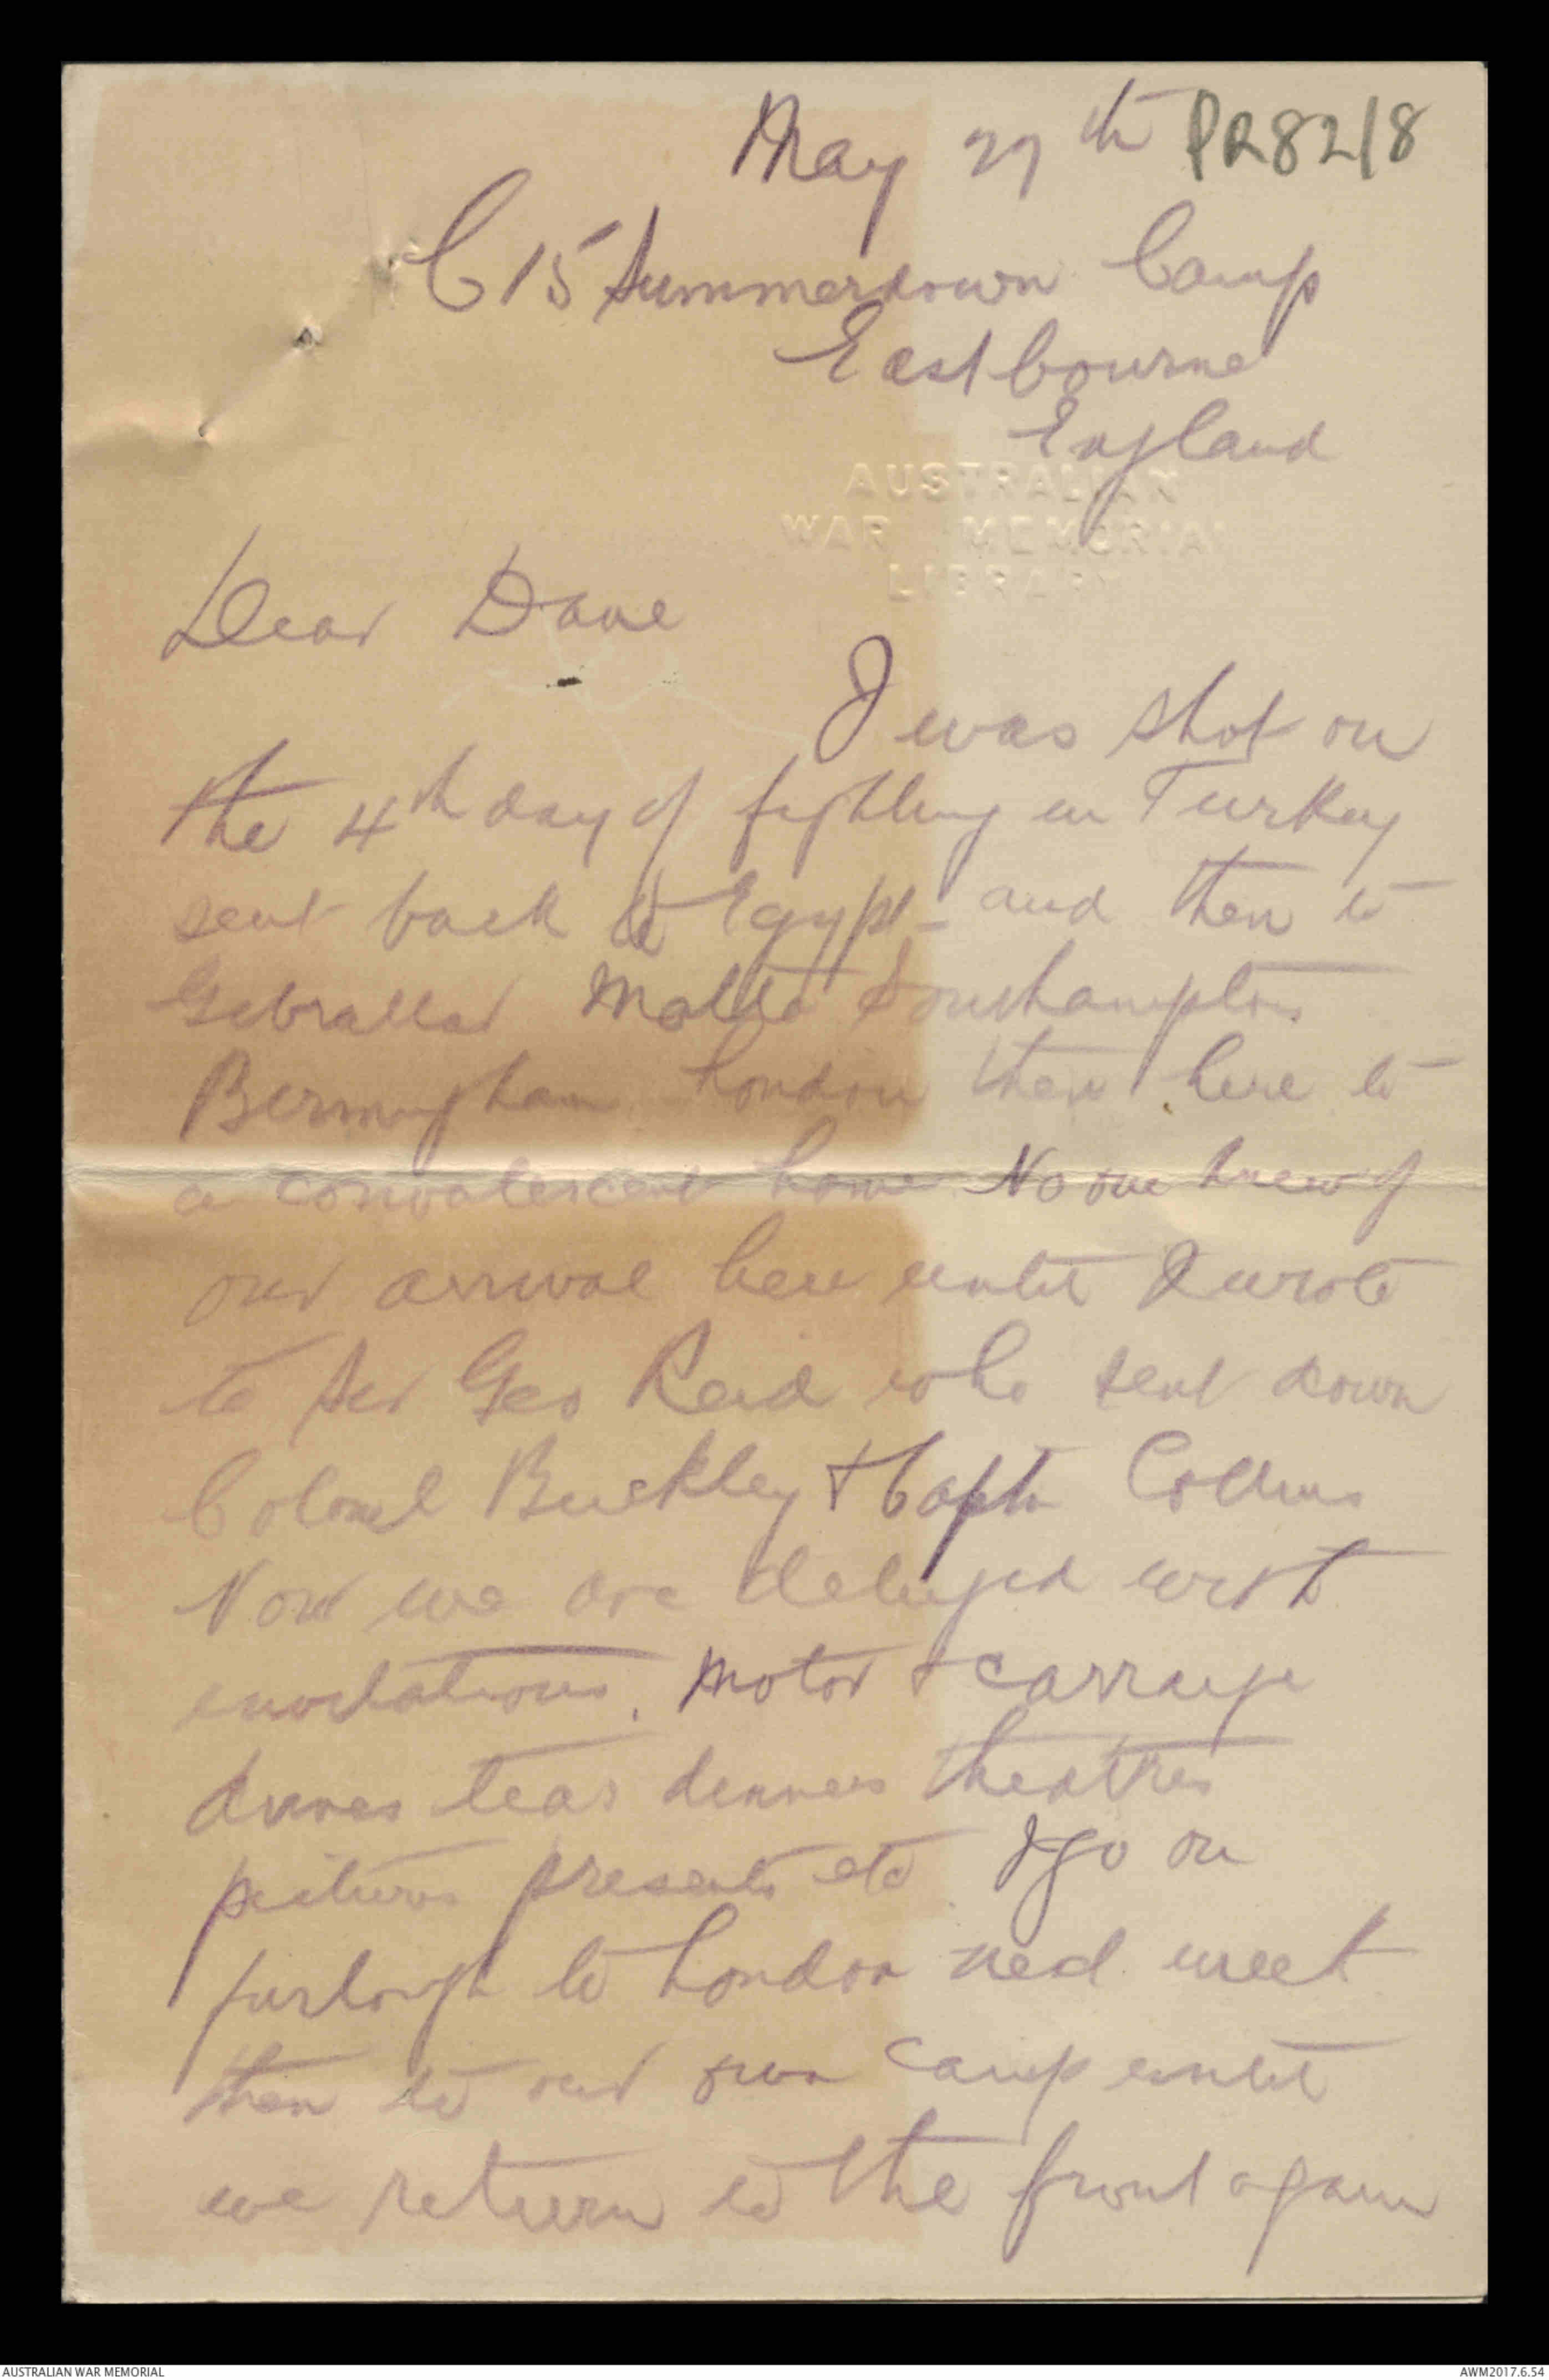 May 27th PR82/8
C15 Summerdown Camp
Eastbourne
England
AUSTRALIAN
WAR MEMORIAL
LIBRARY
Dear Dave
I was shot on
the 4th day of fighting in Turkey
sent back to Egypt - and then to
Gibraltar Malta Southampton
Birmingham London then here to
a convalescent home. No one knew of
our arrival here until I wrote
to Sir Geo Reid who sent down
Colonel Buckley & Captn Collins
Now we are deluged with
invitations. Motor & carraige
drives teas dinners theatres
pictures presents etc. I go on
furlough to London next week
then to our own camp until
we return to the front again
AUSTRALIAN WAR MEMORIAL
AWM2017.6.54